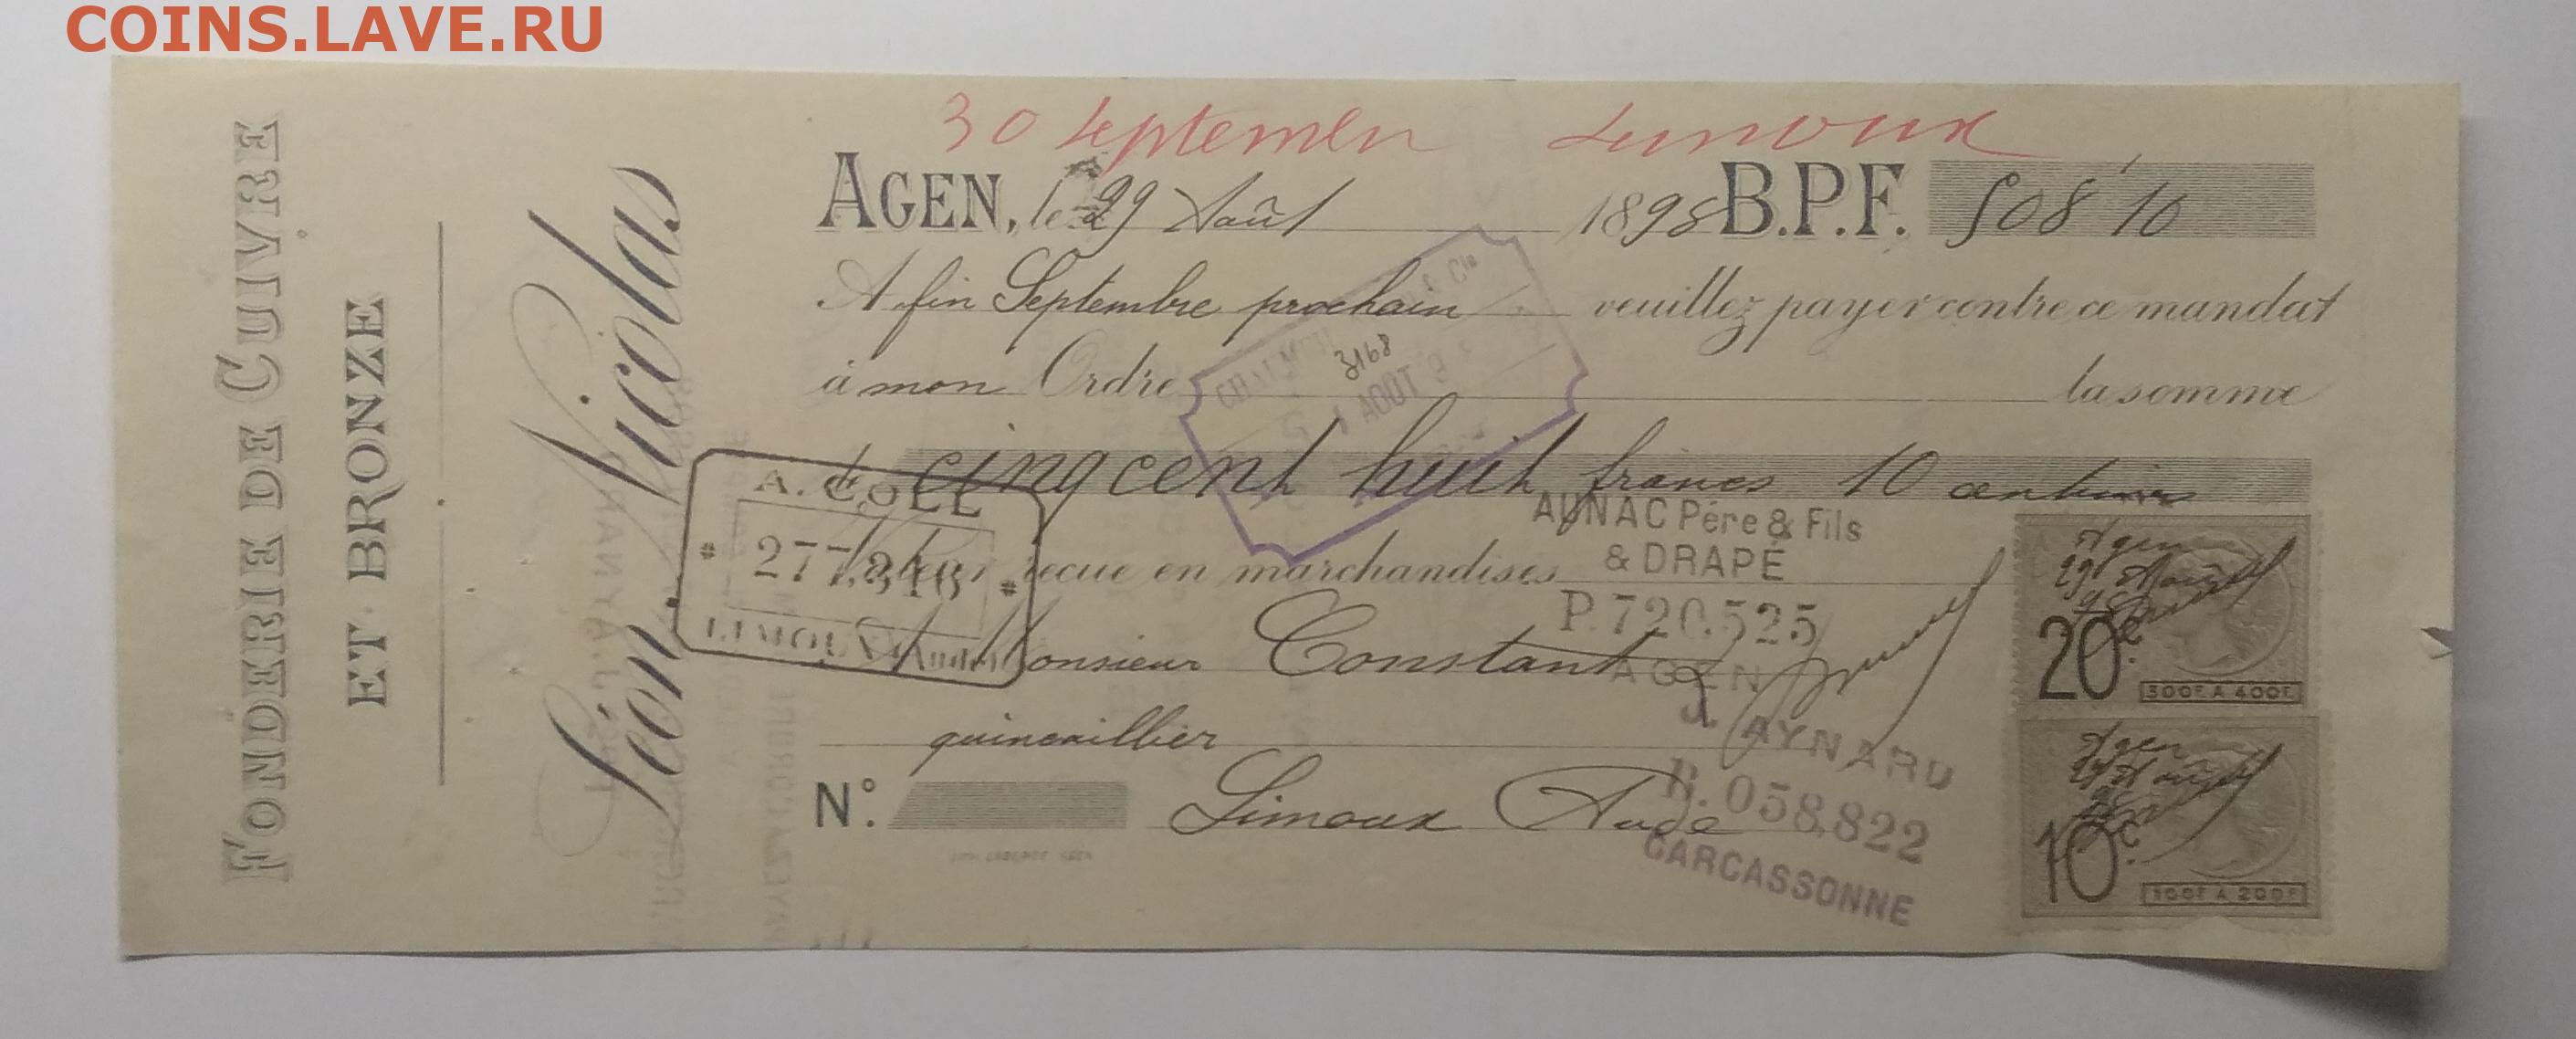 COINS.LAVE.RU
FONDERIE DE CUIVRE
ET BRONZE
Léon Nicolas
30 Septembre Limoux
AGEN, le 29 Août 1898 B.P.F. 508 10
A fin Septembre prochain veuillez payer contre ce mandat
à mon Ordre la somme
3168
AOUT
de cinq cent huit francs 10 centimes
A. COLL
277,348
LIMOUX (Aude)
Valeur reçue en marchandises
AUNAC Père & Fils
& DRAPÉ
P. 720.525
AGEN
A Monsieur Constant
quincaillier
J. AYNARD
B. 058,822
CARCASSONNE
N°. Limoux Aude
Agen
29 Août
98
20c.
300F. A 400F.
Agen
29 Août
98
10c.
100F. A 200F.